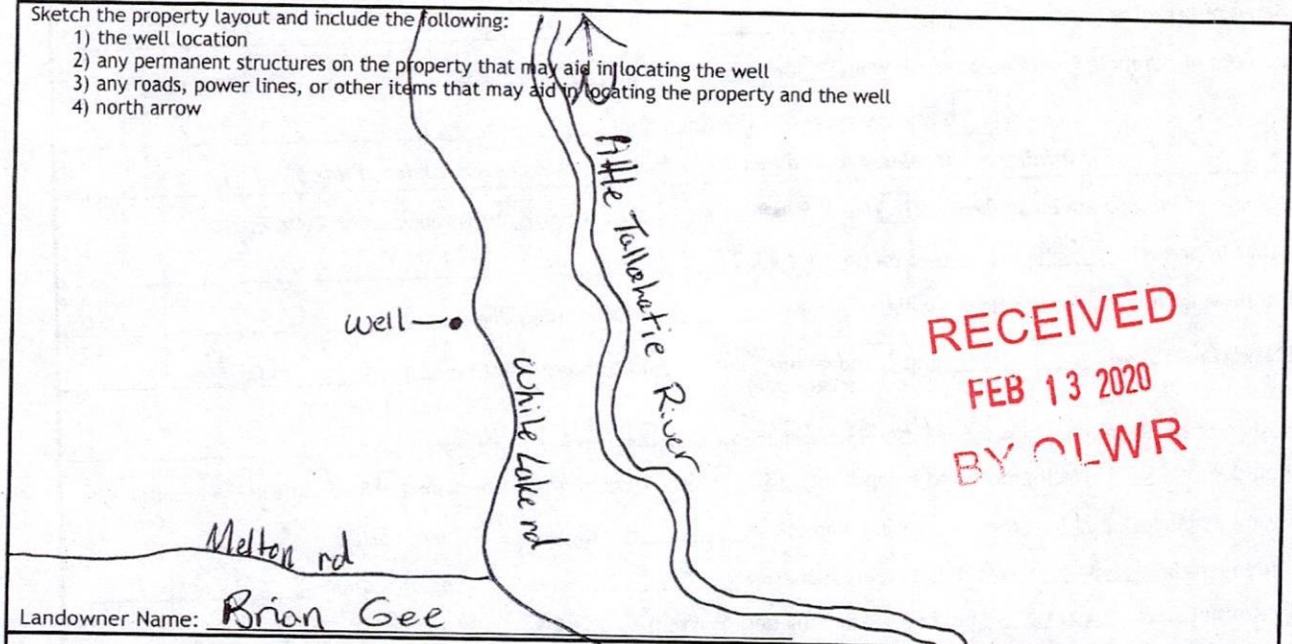 Sketch the property layout and include the following:
1) the well location
2) any permanent structures on the property that may aid in locating the well
3) any roads, power lines, or other items that may aid in locating the property and the well
4) north arrow
Tallahatie River
well
While Lake rd
RECEIVED
FEB 13 2020
BY OLWR
Melton rd
Landowner Name: Brian Gee